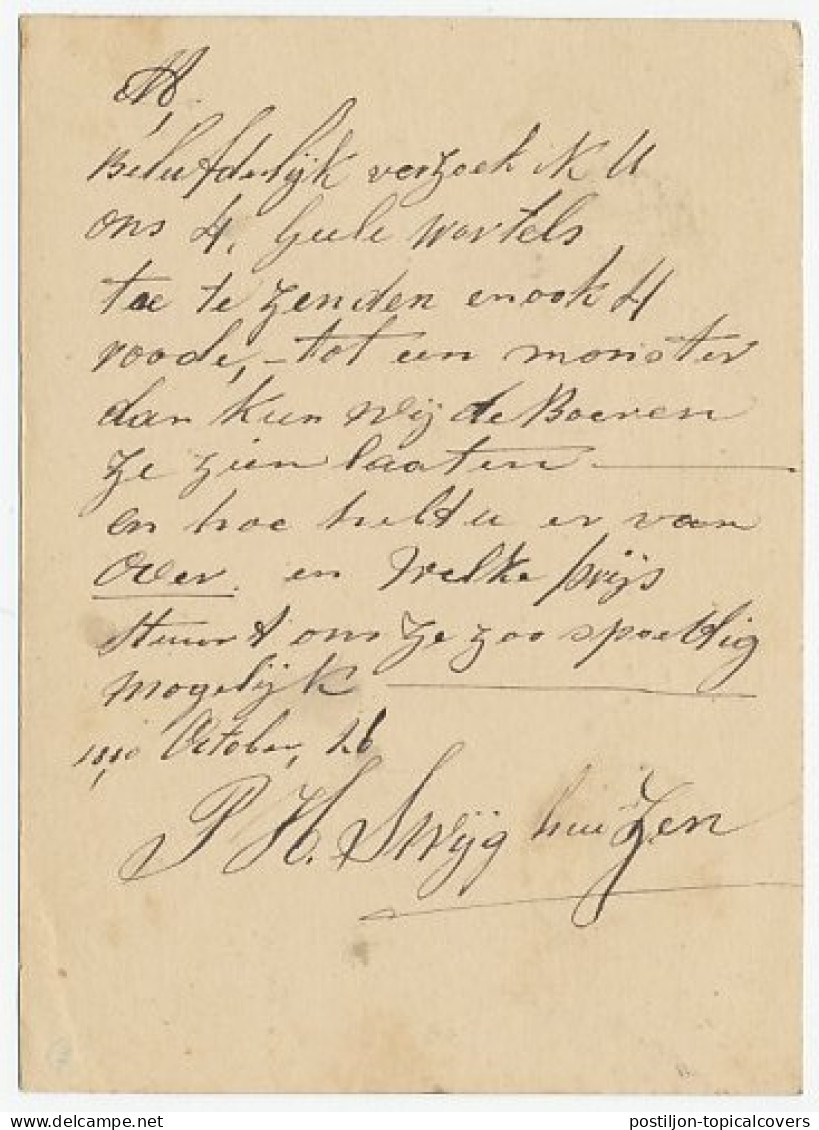 M,
Beleefdelijk verzoek ik U
ons 4, Geele Wortels
toe te zenden en ook 4
roode, - tot een monster
dan kun Wij de Boeren
ze zien laaten
en hoe hebt u er van
Over. en Welke prijs
Stuurt ons ze zoo spoettig
mogelijk
October, 26
P H. Swijghuizen
postiljon-topicalcovers